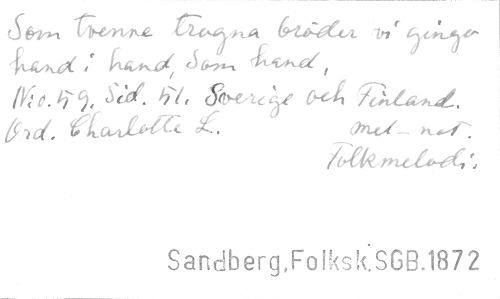 Som tvenne trogna bröder vi gingo
hand i hand, Som hand,
N:o. 59. Sid. 51. Sverige och Finland.
Ord. Charlotte L. mel-not.
Folkmelodi.
Sandberg,Folksk.SGB.1872